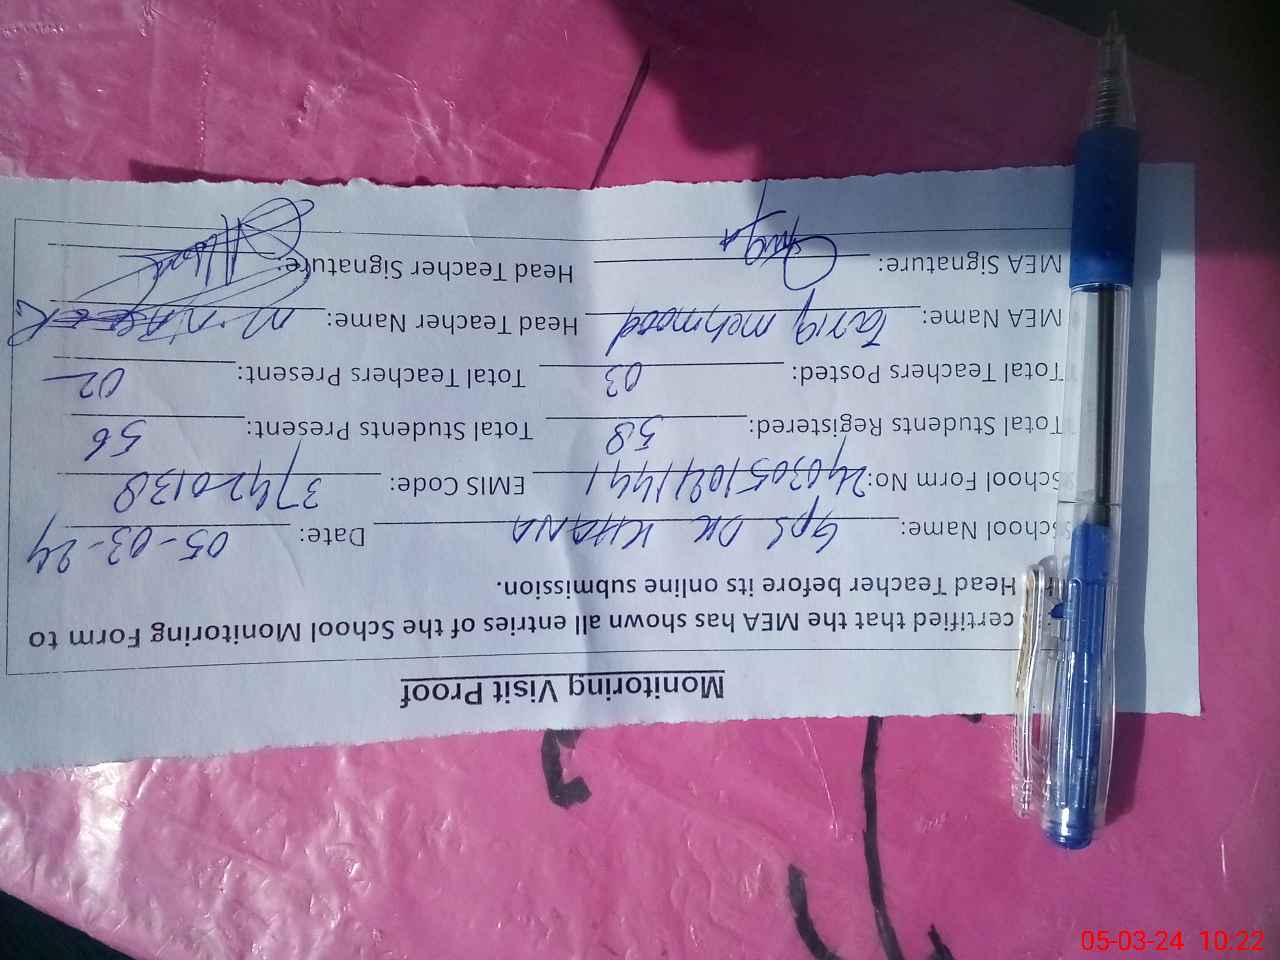 Monitoring Visit Proof
certified that the MEA has shown all entries of the School Monitoring Form to
Head Teacher before its online submission.
School Name: GPS DK KHANA Date: 05-03-24
School Form No: EMIS Code: 37420138
Total Students Registered: 58 Total Students Present: 56
Total Teachers Posted: 03 Total Teachers Present: 02
MEA Name: Tariq mehmood Head Teacher Name:
MEA Signature: Head Teacher Signature:
05-03-24 10:22